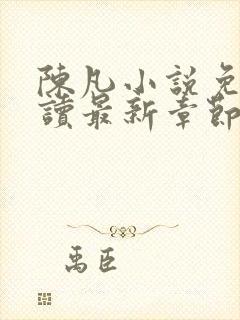 陳凡小說免
讀最新章節
禹臣